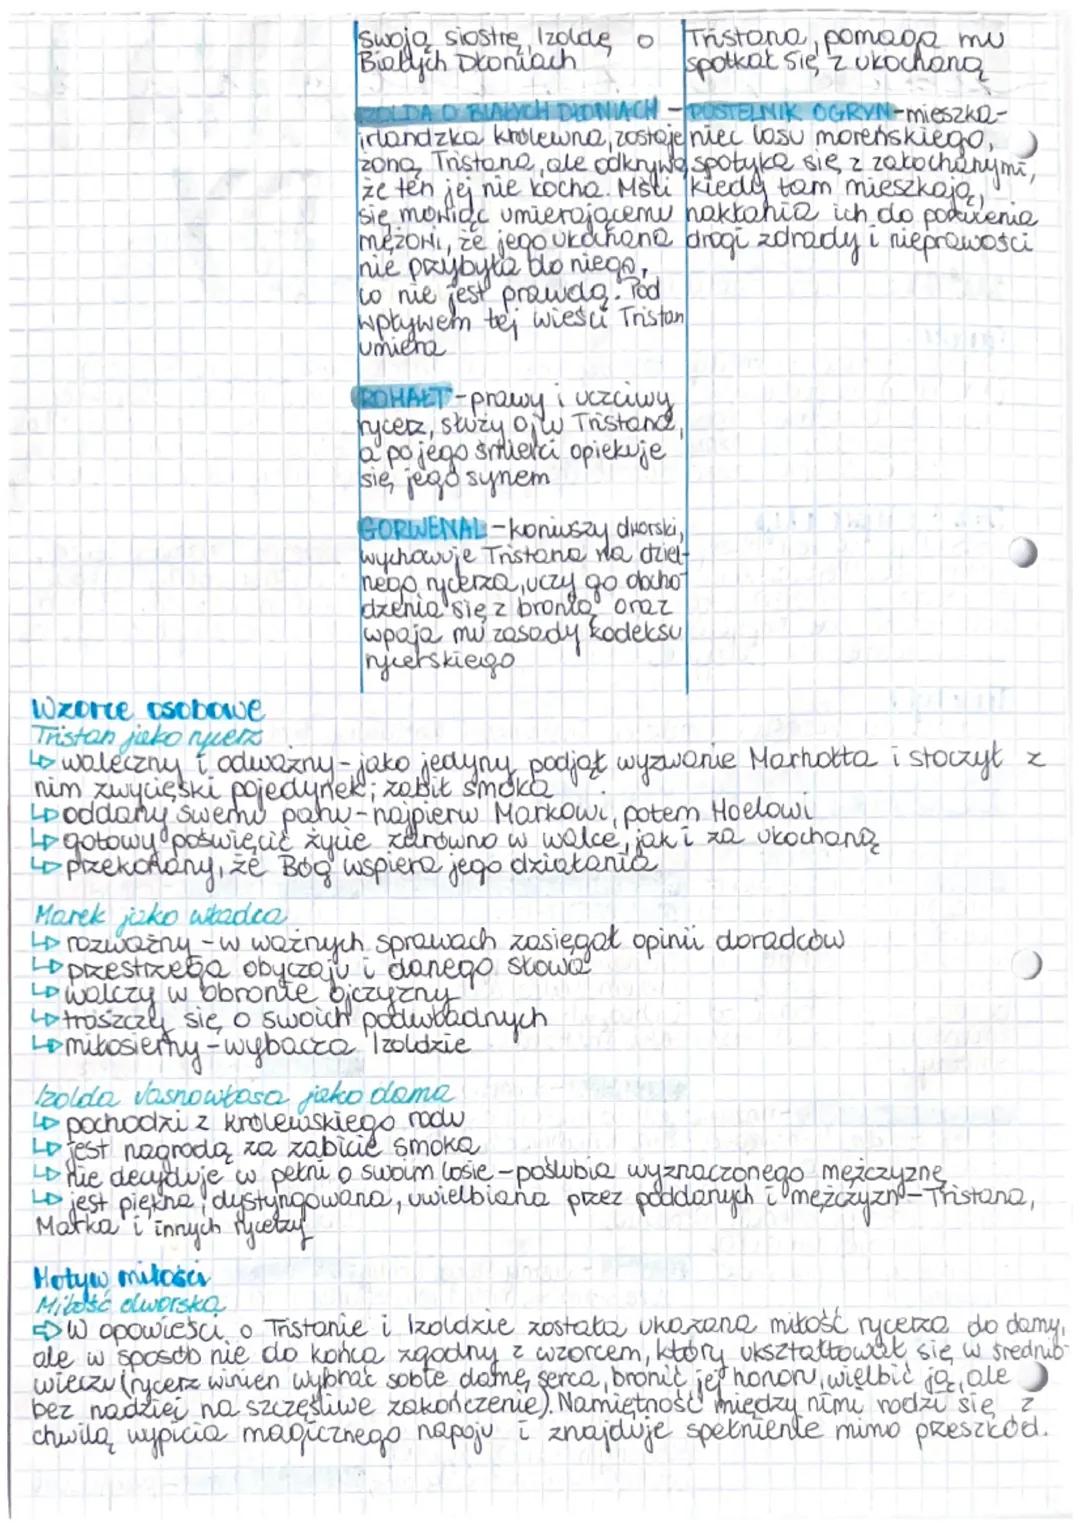 swoją siostrę, Izoldę o
Białych Dłoniach
IZOLDA O BIAŁYCH DŁONIACH -
irlandzka królewna, zostaje
żoną Tristana, ale odkrywa,
że ten jej nie kocha. Mści
się mówiąc umierającemu
mężowi, że jego ukochana
nie przybyła do niego,
co nie jest prawdą. Pod
wpływem tej wieści Tristan
umiera
ROHAŁT - prawy i uczciwy
rycerz, służy ojcu Tristana,
a po jego śmierci opiekuje
się jego synem
GORWENAL - koniuszy dworski,
wychowuje Tristana na dziel-
nego rycerza, uczy go obcho-
dzenia się z bronią oraz
wpaja mu zasady kodeksu
rycerskiego
Tristana, pomaga mu
spotkać się z ukochaną
PUSTELNIK OGRYN - mieszka-
niec lasu moreńskiego,
spotyka się z zakochanymi,
kiedy tam mieszkają,
nakłania ich do porzucenia
drogi zdrady i nieprawości
Wzorce osobowe
Tristan jako rycerz
↳ waleczny i odważny - jako jedyny podjął wyzwanie Marhołta i stoczył z
nim zwycięski pojedynek; zabił smoka
↳ oddany swemu panu - najpierw Markowi, potem Hoelowi
↳ gotowy poświęcić życie zarówno w walce, jak i za ukochaną
↳ przekonany, że Bóg wspiera jego działania
Marek jako władca
↳ rozważny - w ważnych sprawach zasięgał opinii doradców
↳ przestrzega obyczaju i danego słowa
↳ walczy w obronie ojczyzny
↳ troszczy się o swoich podwładnych
↳ miłosierny - wybacza Izoldzie
Izolda Jasnowłosa jako dama
↳ pochodzi z królewskiego rodu
↳ jest nagrodą za zabicie smoka
↳ nie decyduje w pełni o swoim losie - poślubia wyznaczonego mężczyznę
↳ jest piękna, dystyngowana, uwielbiana przez poddanych i mężczyzn - Tristana,
Marka i innych rycerzy
Motyw miłości
Miłość dworska
⇨ W opowieści o Tristanie i Izoldzie została ukazana miłość rycerza do damy,
ale w sposób nie do końca zgodny z wzorcem, który ukształtował się w średnio-
wieczu (rycerz winien wybrać sobie damę serca, bronić jej honoru, wielbić ją, ale
bez nadziei na szczęśliwe zakończenie). Namiętność między nimi rodzi się z
chwilą wypicia magicznego napoju i znajduje spełnienie mimo przeszkód.